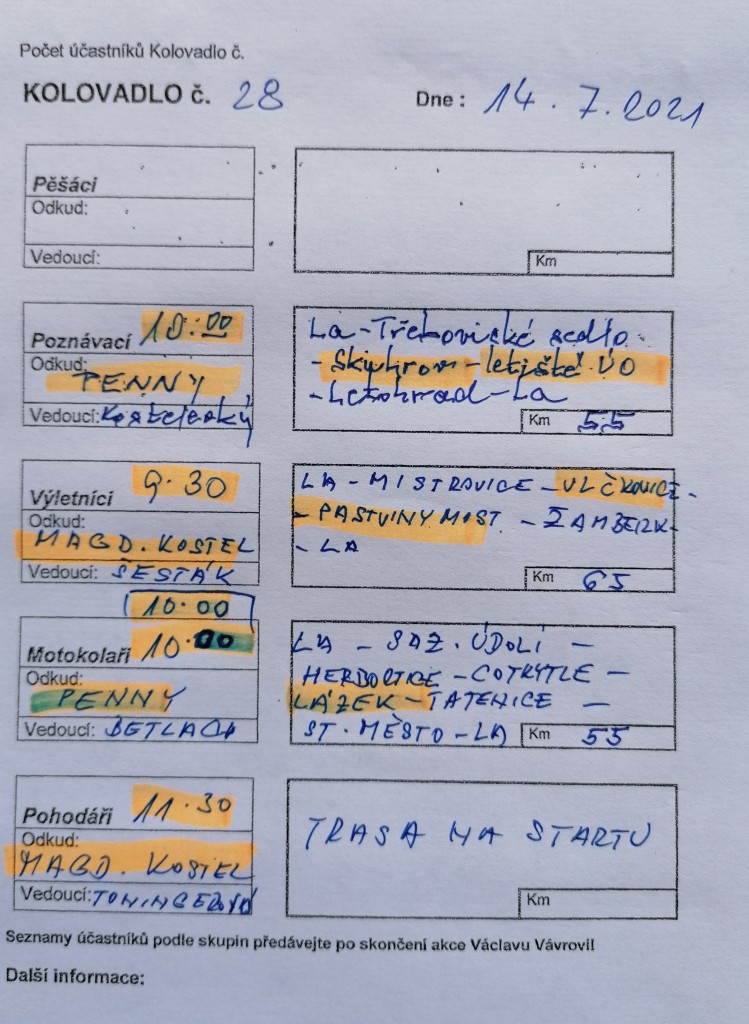 Počet účastníků Kolovadlo č.
KOLOVADLO č. 28 Dne : 14. 7. 2021
Pěšáci
Odkud:
Vedoucí:
Km
Poznávací 10:00
Odkud: PENNY
Vedoucí: Kostelecký
La - Třebovické sedlo
- Skuhrov - letiště ÚO
- Letohrad - La
Km 55
Výletníci 9.30
Odkud:
MAGD. KOSTEL
Vedoucí: ŠESTÁK
LA - MISTROVICE - VLČKOVICE -
- PASTVINY MOST - ŽAMBERK -
- LA
Km 65
10.00
Motokolaři 10.00
Odkud:
PENNY
Vedoucí: BETLACH
LA - SAZ. ÚDOLÍ -
HERBORTICE - COTKYTLE -
LÁZEK - TATENICE -
ST. MĚSTO - LA
Km 55
Pohodáři 11.30
Odkud:
MAGD. KOSTEL
Vedoucí: TONINGEROVÁ
TRASA NA STARTU
Km
Seznamy účastníků podle skupin předávejte po skončení akce Václavu Vávrovi!
Další informace: